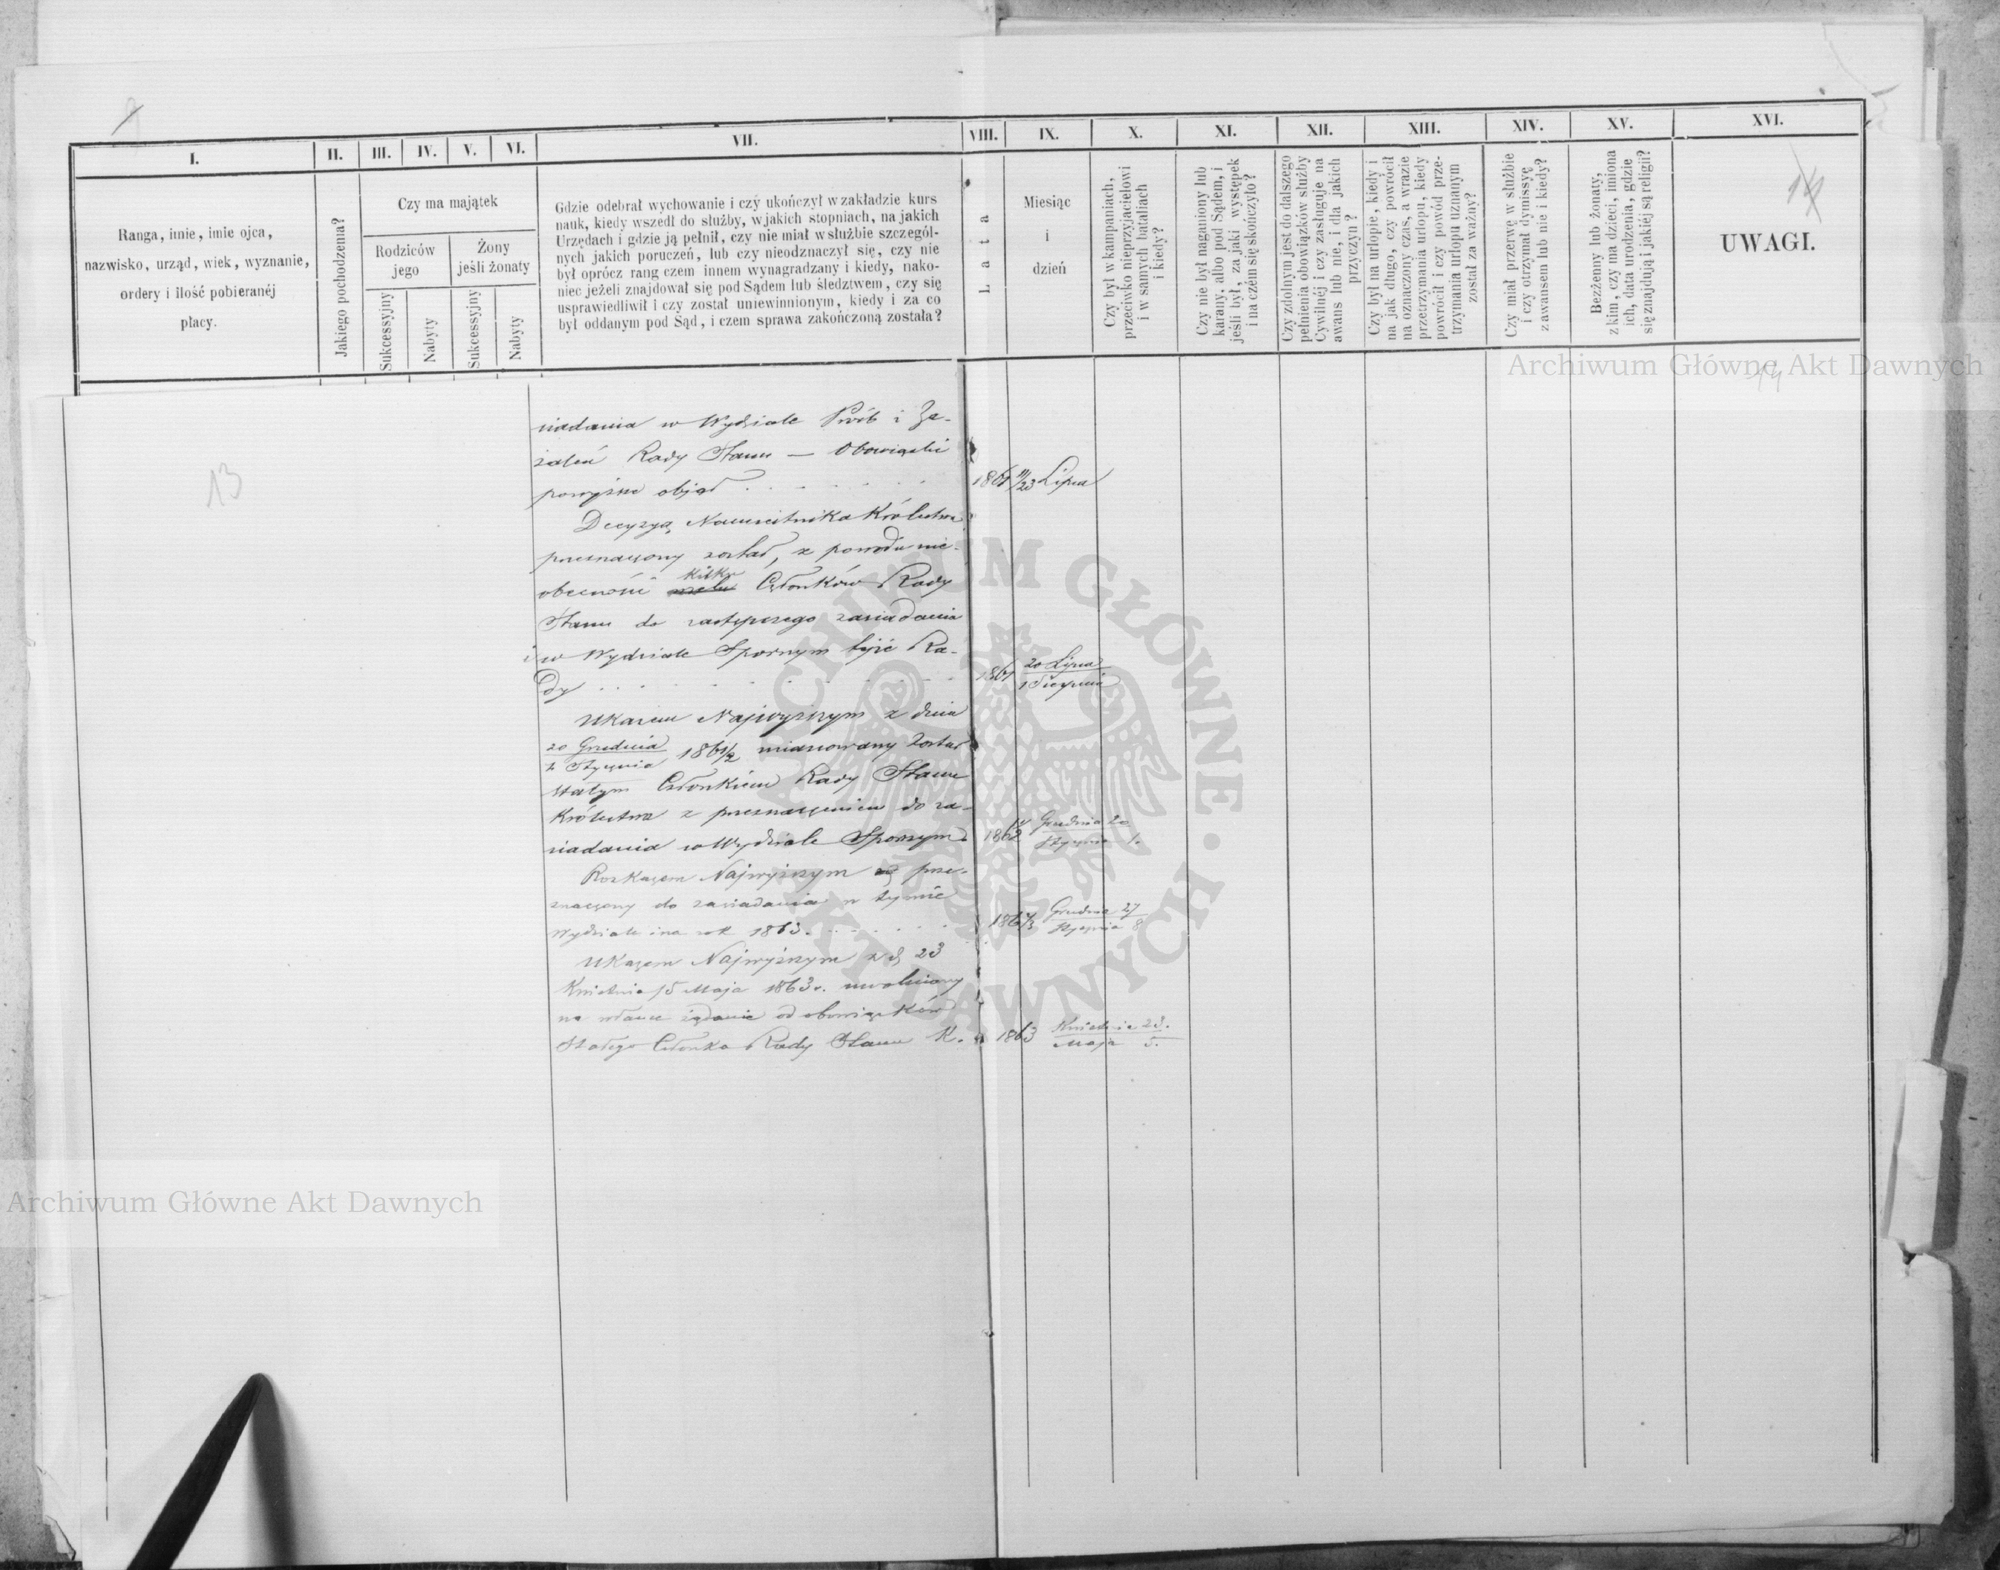 I. II. III. IV. V. VI. VII. VIII. IX. X. XI. XII. XIII. XIV. XV. XVI.
Ranga, imie, imie ojca,
nazwisko, urząd, wiek, wyznanie,
ordery i ilość pobieranéj
płacy.
Jakiego pochodzenia?
Czy ma majątek
Rodziców
jego
Żony
jeśli żonaty
Sukcessyjny
Nabyty
Sukcessyjny
Nabyty
Gdzie odebrał wychowanie i czy ukończył w zakładzie kurs
nauk, kiedy wszedł do służby, w jakich stopniach, na jakich
Urzędach i gdzie ją pełnił, czy nie miał w służbie szczegól-
nych jakich poruczeń, lub czy nieodznaczył się, czy nie
był oprócz rang czem innem wynagradzany i kiedy, nako-
niec jeżeli znajdował się pod Sądem lub śledztwem, czy się
usprawiedliwił i czy został uniewinnionym, kiedy i za co
był oddanym pod Sąd, i czem sprawa zakończoną została?
Lata
Miesiąc
i
dzień
Czy był w kampaniach,
przeciwko nieprzyjacielowi
i w samych bataliach
i kiedy?
Czy nie był naganiony lub
karany, albo pod Sądem, i
jeśli był, za jaki występek
i na czém się skończyło?
Czy zdolnym jest do dalszego
pełnienia obowiązków służby
Cywilnéj i czy zasługuje na
awans lub nie, i dla jakich
przyczyn?
Czy był na urlopie, kiedy i
na jak długo, czy powrócił
na oznaczony czas, a wrazie
przetrzymania urlopu, kiedy
powrócił i czy powód prze-
trzymania urlopu uznanym
został za ważny?
Czy miał przerwę w służbie
i czy otrzymał dymissyę
z awansem lub nie i kiedy?
Bezżenny lub żonaty,
z kim, czy ma dzieci, imiona
ich, data urodzenia, gdzie
się znajdują i jakiéj są religii?
UWAGI.
14
13
siadania w Wydziale Próśb i Za-
żaleń Rady Stanu — Obowiązki
powyższe objął . . . . . . 1861 11/23 Lipca
Decyzyą Namiestnika Królestwa
przeznaczony został, z powodu nie-
obecności kilku Członków Rady
Stanu do zastępczego zasiadania
i w Wydziale Spornym tejże Ra-
dy . . . . . . 1861 20 Lipca
1 Sierpnia
Ukazem Najwyższym z dnia
20 Grudnia
1 Stycznia 1861/2 mianowany został
stałym Członkiem Rady Stanu
Królestwa z przeznaczeniem do za-
siadania w Wydziale Spornym 1861/2 Grudnia 20
Stycznia 1.
Rozkazem Najwyższym prze-
znaczony do zasiadania w tymże
Wydziale i na rok 1863. . . . . . 1862/3 Grudnia 27
Stycznia 8
Ukazem Najwyższym z d. 23
Kwietnia / 5 Maja 1863 r. uwolniony
na własne żądanie od obowiązków
Stałego Członka Rady Stanu K. 1863 Kwietnia 23.
Maja 5.
Archiwum Główne Akt Dawnych
Archiwum Główne Akt Dawnych
ARCHIWUM GŁÓWNE · AKT DAWNYCH ·